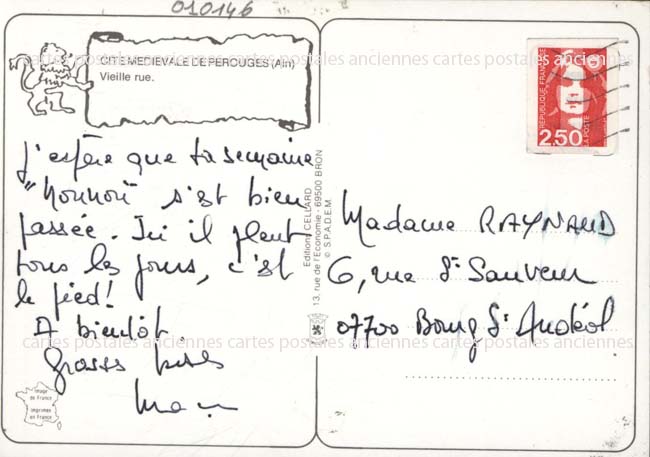 010146
CITE MEDIEVALE DE PEROUGES (Ain)
Vieille rue.
J'espère que ta semaine
s'est bien
passée. Ici il pleut
tous les jours, c'est
le pied!
A bientôt
Grosses bises
Editions CELLARD
13, rue de l'Economie - 69500 BRON
© S.P.A.D.E.M.
REPUBLIQUE FRANCAISE
2,50
LA POSTE
Madame RAYNAUD
6, rue St Sauveur
07700 Bourg St Andéol
Image
de France
Imprimé
en France
cartes postales anciennes cartes postales anciennes cartes postales anciennes